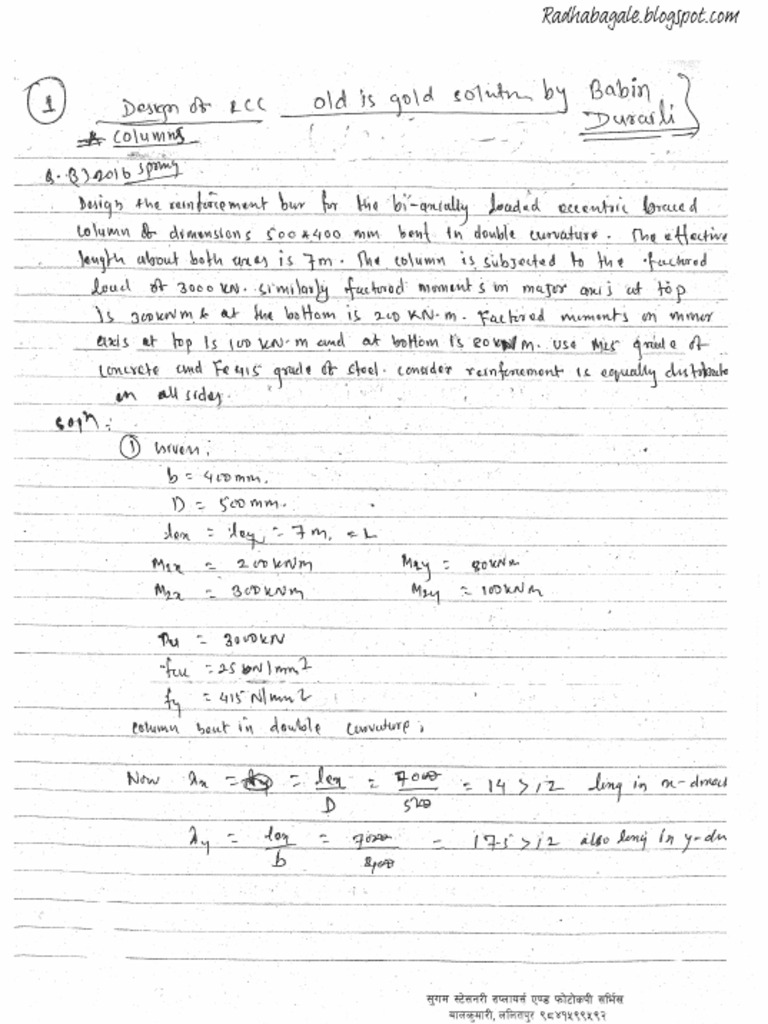 Radhabagale.blogspot.com
1 Design of RCC old is gold solution by Babin
* Columns
Q. 8) 2016 spring
Design the reinforcement bar for the bi-axially loaded eccentric braced
column of dimensions 500*400 mm bent in double curvature. The effective
length about both axes is 7m. The column is subjected to the factored
load of 3000 KN. similarly factored moments in major axis at top
is 300 kNm & at the bottom is 200 KN-m. Factored moments on minor
axis at top is 100 KN-m and at bottom is 80 kN/m. use M25 grade of
concrete and Fe415 grade of steel. consider reinforcement is equally distribute
on all sides.
Soln:
① Given:
b = 400mm.
D = 500mm.
lex = ley = 7 m. = L
M1x = 200 kNm M1y = 80kNm
M2x = 300kNm M2y = 100 kNm
Pu = 3000KN
fcu = 25 N/mm2
fy = 415 N/mm2
column bent in double curvature;
Now λx = = lex/D = 7000/500 = 14 > 12 long in x-direc
λy = ley/b = 7000/400 = 17.5 > 12 also long in y-dir
सुगम स्टेसनरी सप्लायर्स एण्ड फोटोकपी सर्भिस
बालकुमारी, ललितपुर ९८४१५९९५९२